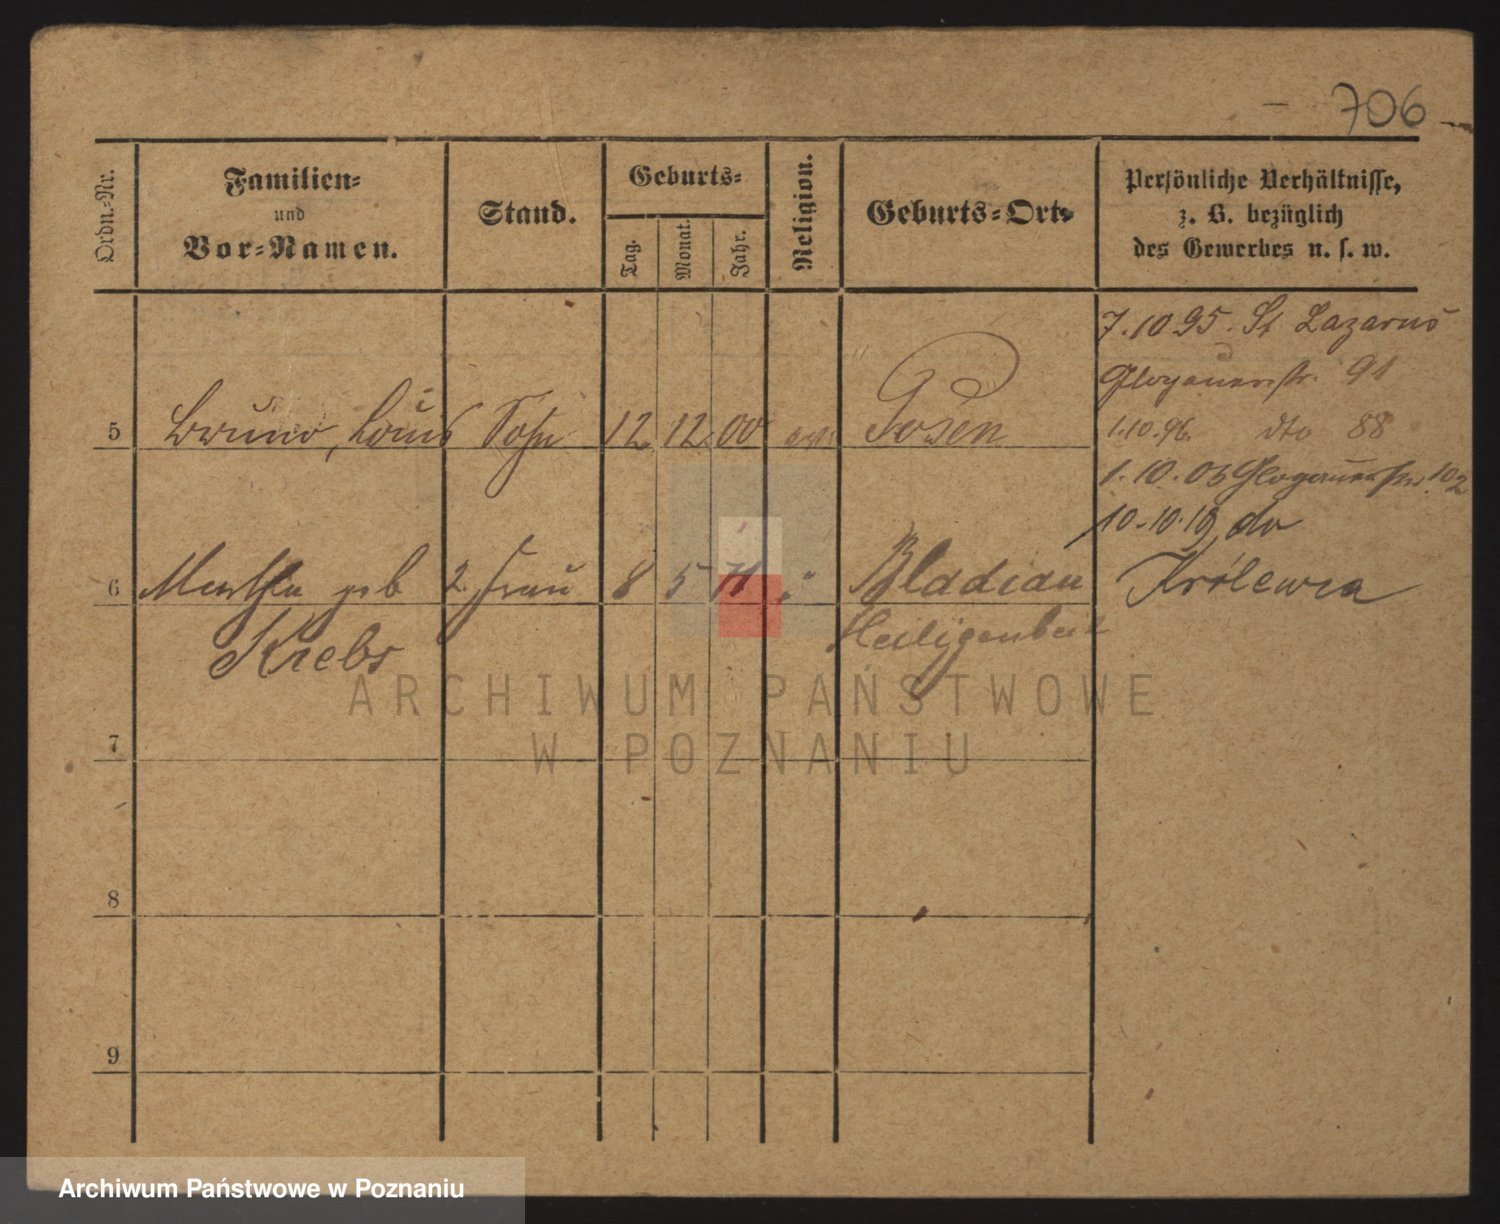 706
Ordn.-Nr.
Familien-
und
Vor-Namen.
Stand.
Geburts-
Tag.
Monat.
Jahr.
Religion.
Geburts-Ort.
Persönliche Verhältnisse,
z. B. bezüglich
des Gewerbes u. s. w.
7.10 95. St Lazarus
Glogauerstr. 91
1.10.96. dto 88
1.10.03 Glogauerstr. 102
10.10.19 do
Królewca
5 Bruno, Louis Sohn 12 12 00 ev. Posen
6 Martha geb 2. Frau 8 5 71 " Bladiau
Krebs Heiligenbeil
7
8
9
ARCHIWUM PAŃSTWOWE
W POZNANIU
Archiwum Państwowe w Poznaniu